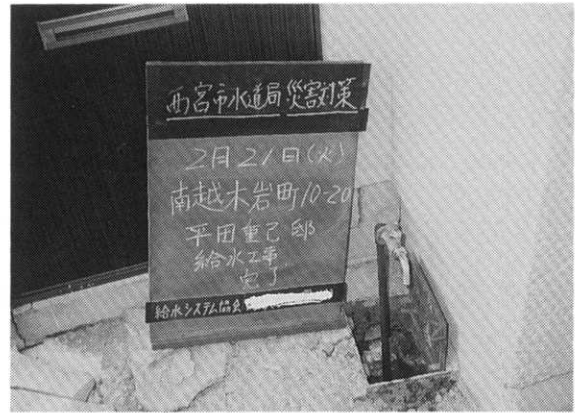 西宮市水道局 災害対策
2月21日(火)
南越木岩町10-20
平田重己 邸
給水工事
完了
給水システム協会